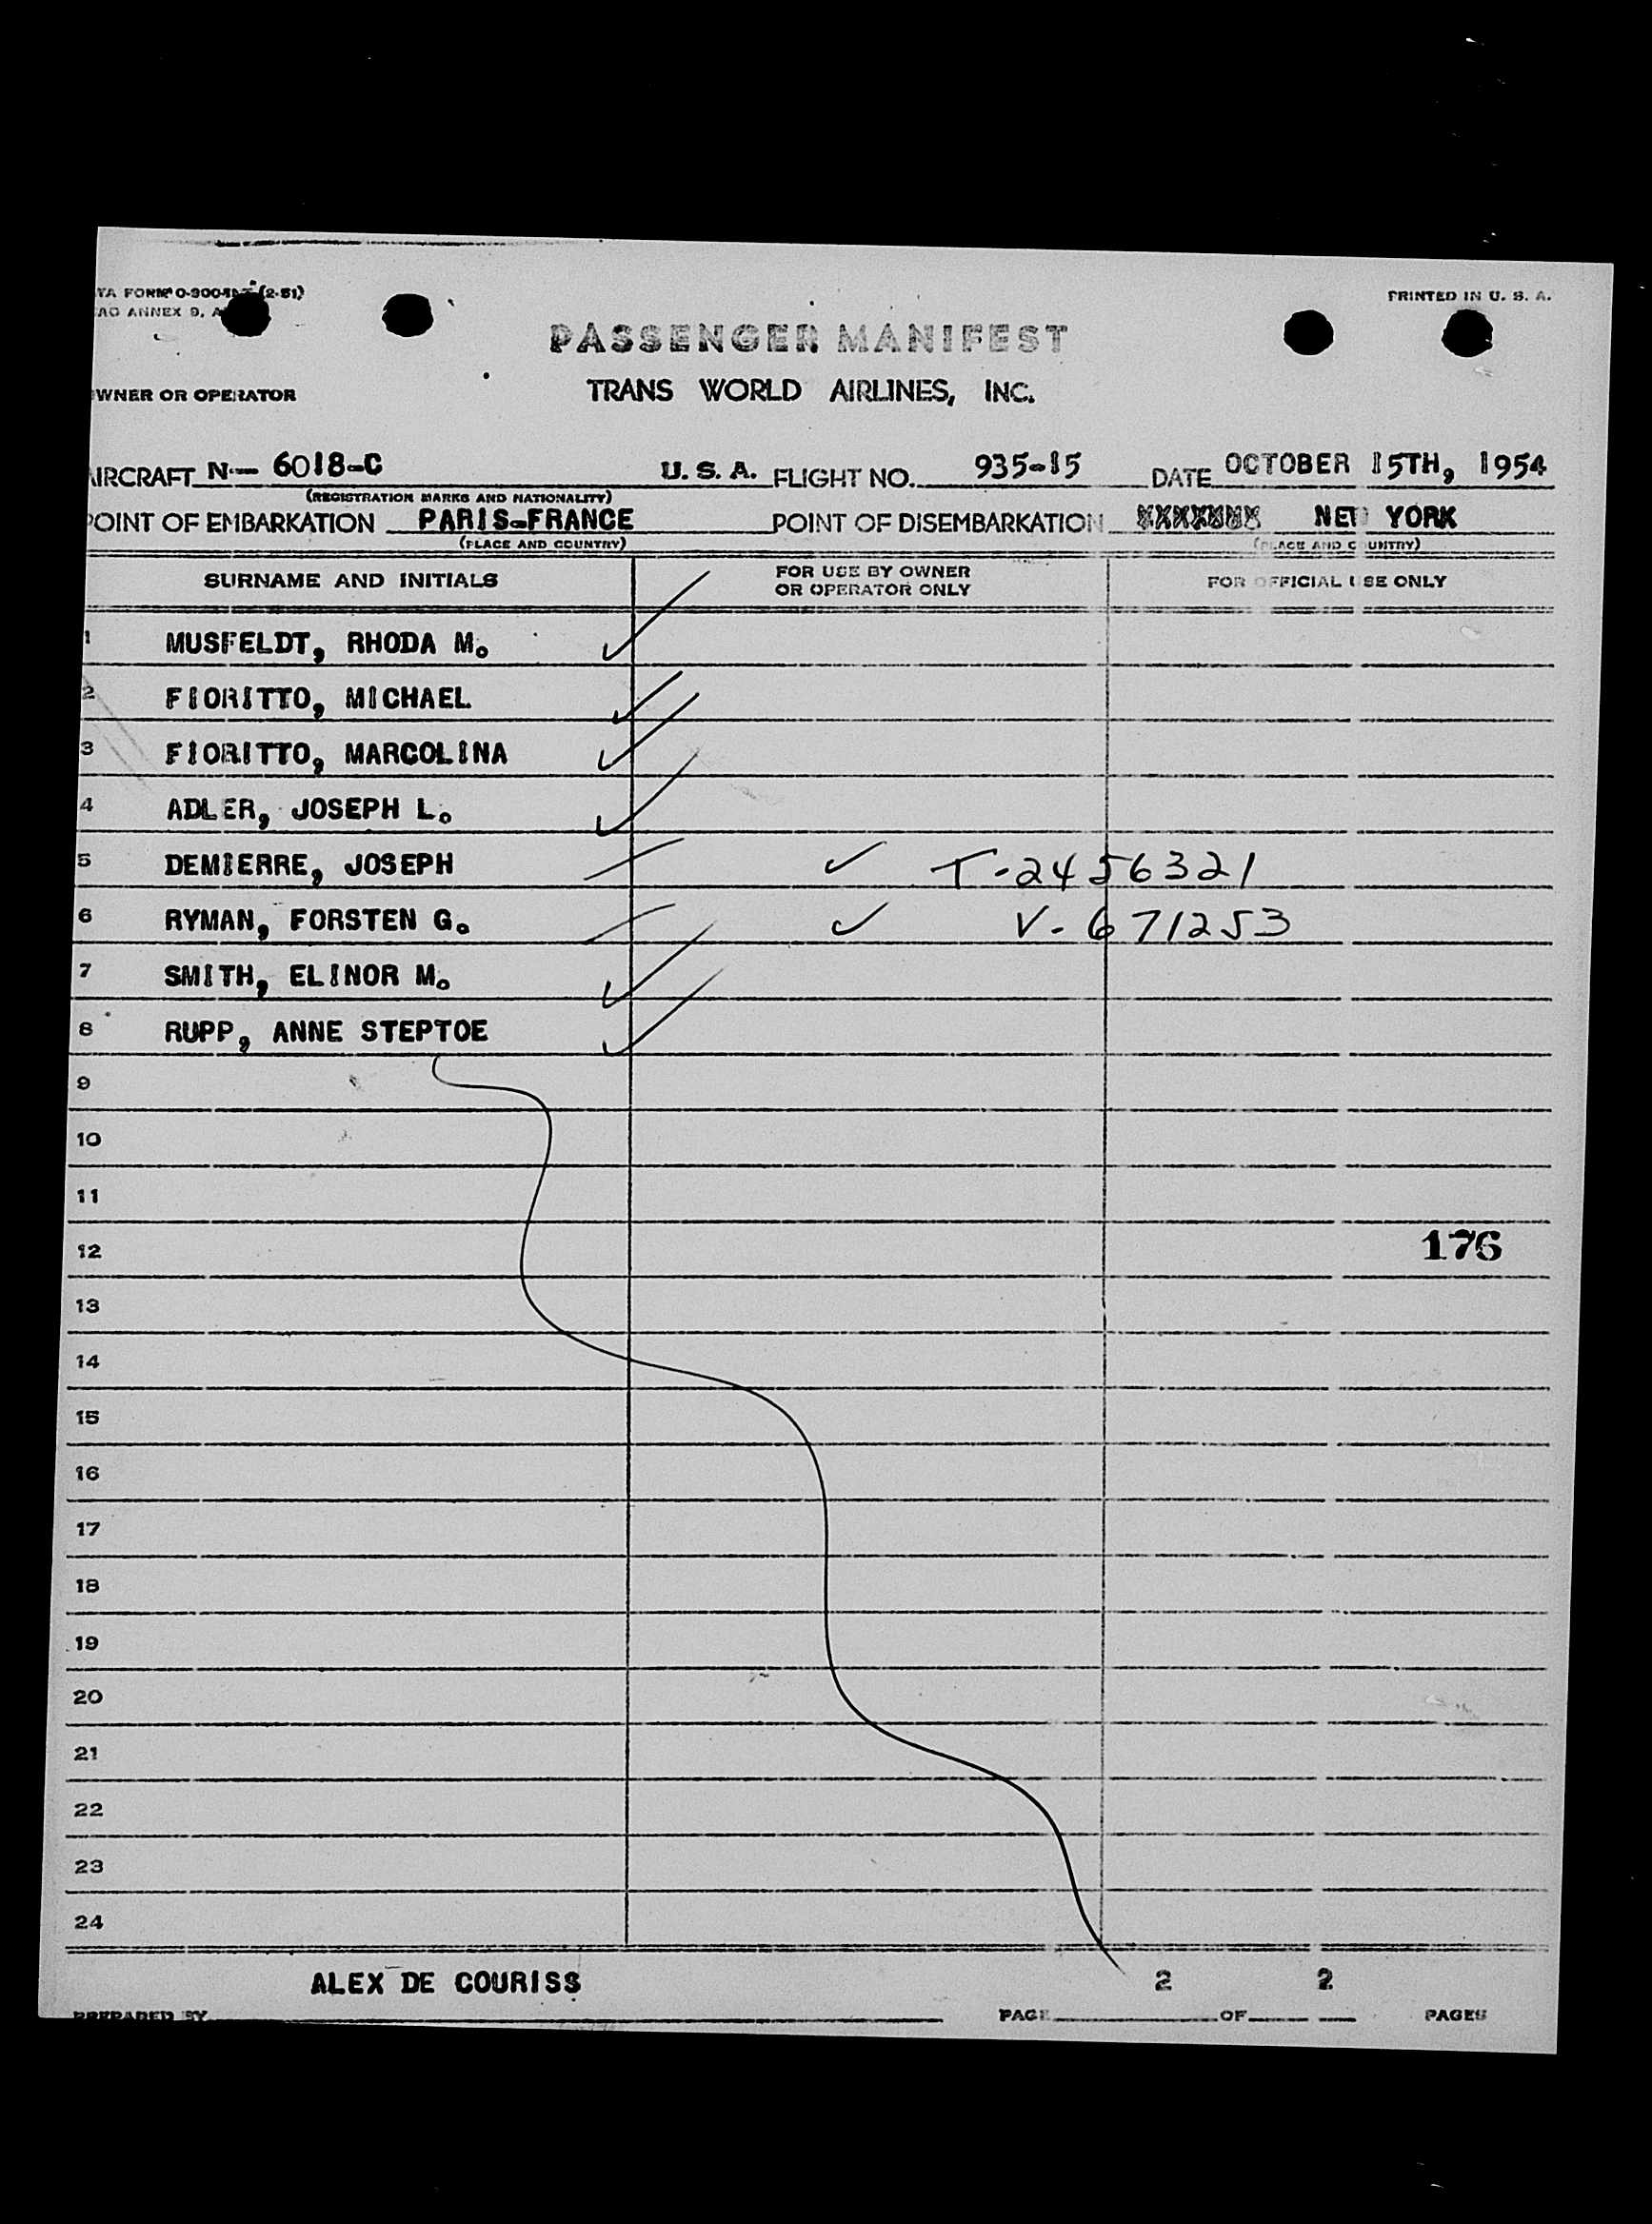 PRINTED IN U. S. A.
ANNEX 9,
PASSENGER MANIFEST
OWNER OR OPERATOR TRANS WORLD AIRLINES, INC.
AIRCRAFT N-- 6018-C U. S. A. FLIGHT NO. 935-15 DATE OCTOBER 15TH, 1954
(REGISTRATION MARKS AND NATIONALITY)
POINT OF EMBARKATION PARIS-FRANCE POINT OF DISEMBARKATION XXXXXXX NEW YORK
(PLACE AND COUNTRY) (PLACE AND COUNTRY)
SURNAME AND INITIALS FOR USE BY OWNER OR OPERATOR ONLY FOR OFFICIAL USE ONLY
1 MUSFELDT, RHODA M.
2 FIORITTO, MICHAEL
3 FIORITTO, MARCOLINA
4 ADLER, JOSEPH L.
5 DEMIERRE, JOSEPH T-2456321
6 RYMAN, FORSTEN G. V-671253
7 SMITH, ELINOR M.
8 RUPP, ANNE STEPTOE
9
10
11
12 176
13
14
15
16
17
18
19
20
21
22
23
24
ALEX DE COURISS 2 2
PREPARED BY PAGE OF PAGES